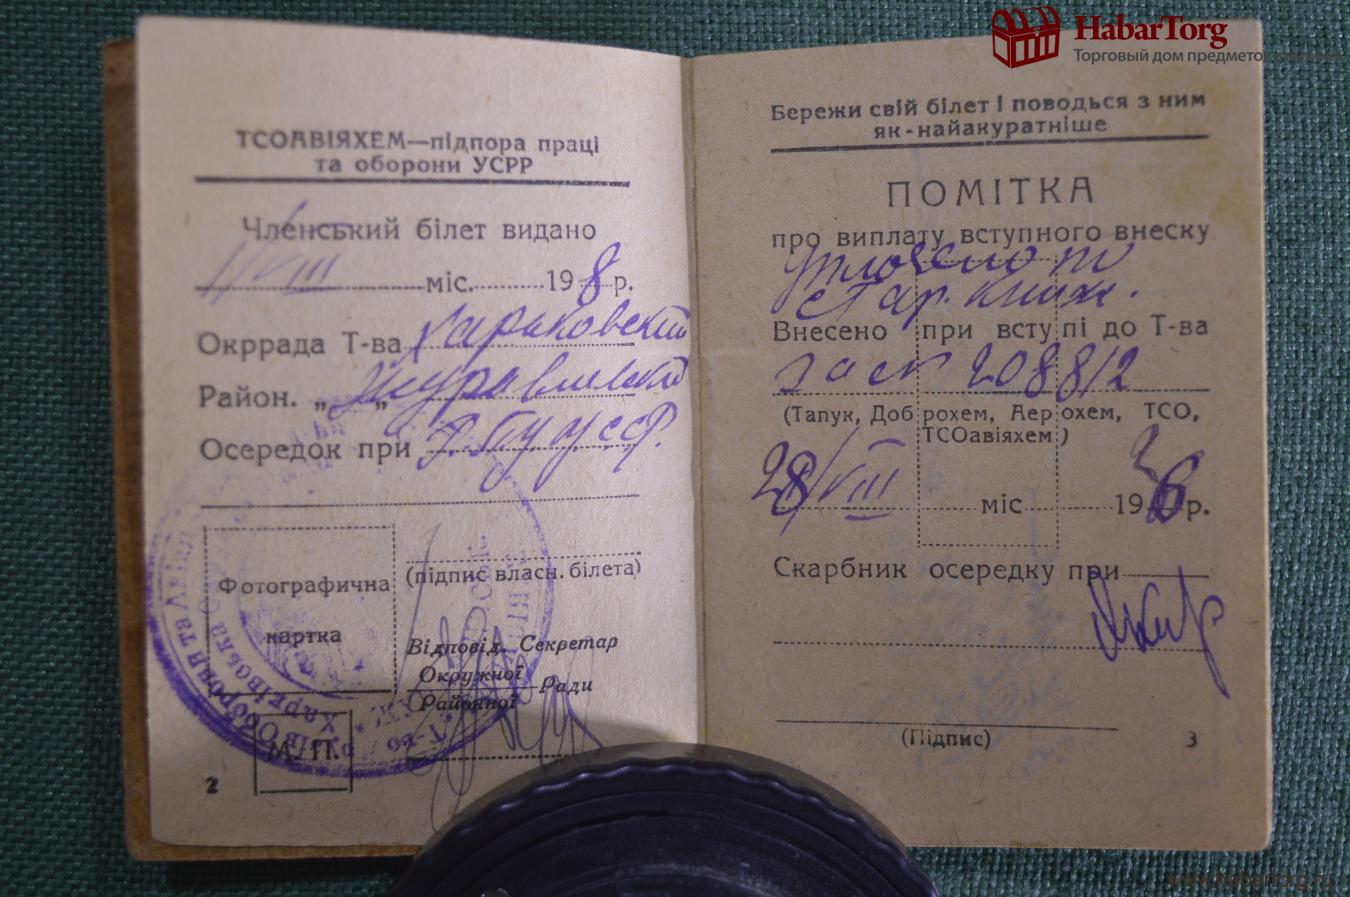 HabarTorg
Торговый дом предметов
ТСОАВІЯХЕМ—підпора праці
та оборони УСРР
Членський білет видано
VIII міс. 198 р.
Окррада Т-ва Харьковский
Район. „ „ Журавлевский
Осередок при
Фотографична
картка
(підпис власн. білета)
Відповід. Секретар
Окружної
Районної
Ради
М. П.
2
Бережи свій білет і поводься з ним
як-найакуратніше
ПОМІТКА
про виплату вступного внеску
Уплочено по
стар. книж.
Внесено при вступі до Т-ва
2088/2
(Тапук, Доброхем, Аерохем, ТСО,
ТСОавіяхем)
28/VIII міс 19 р.
Скарбник осередку при
(Підпис)
3
www.habartorg.ru